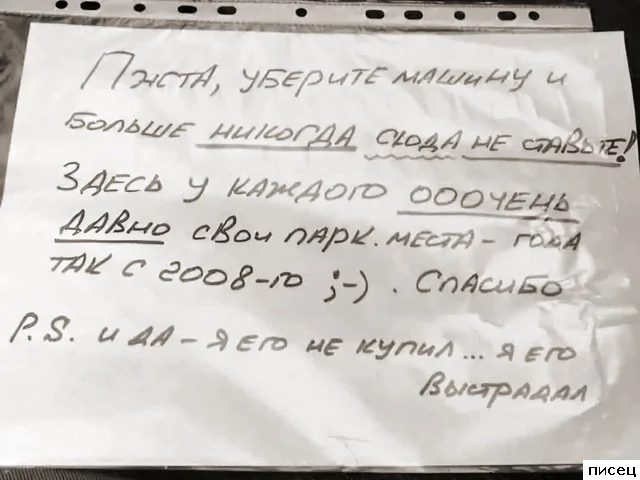 Пжста, уберите машину и
больше никогда сюда не ставьте!
Здесь у каждого ооочень
давно свои парк. места - года
так с 2008-го ;-) . Спасибо
P.S. и да - я его не купил... я его
выстрадал
писец